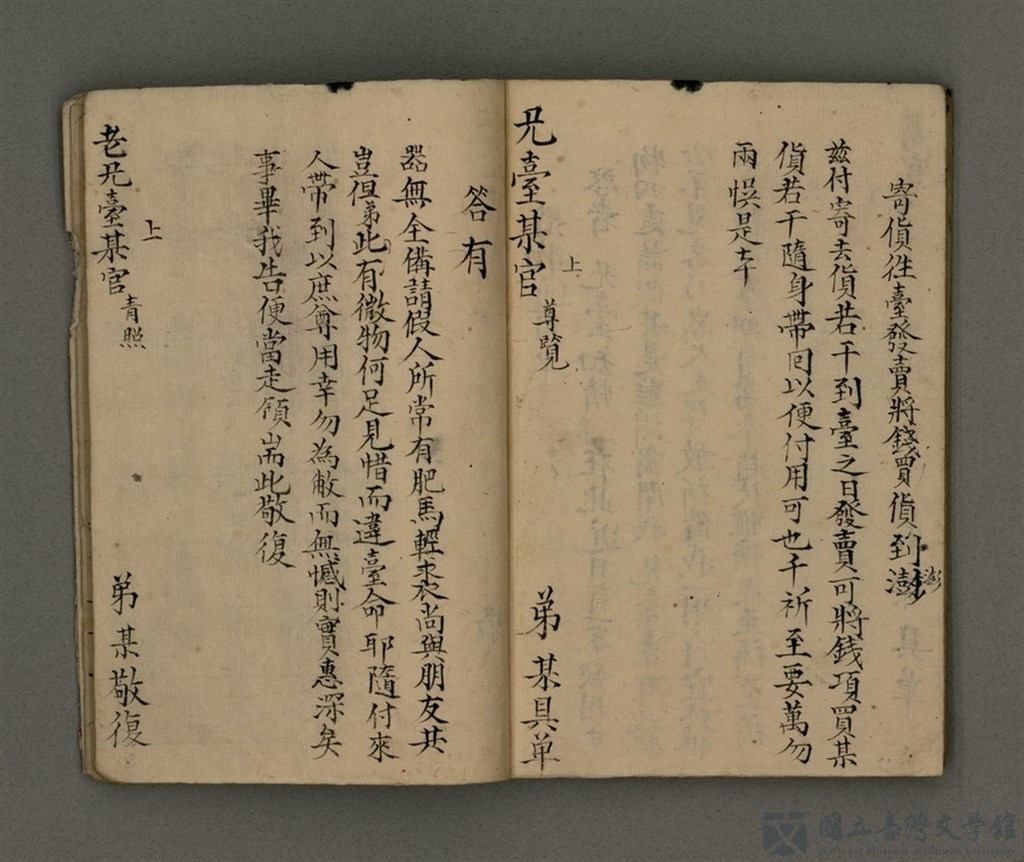 寄貨徃臺發賣將錢買貨到澎
澎
茲付寄去貨若干到臺之日發賣可將錢項買某
貨若干隨身帶囘以便付用可也千祈至要萬勿
兩悞是幸
上
兄臺某官 尊覧
弟某具单
答有
器無全備請假人所常有肥馬輕裘尚與朋友共
豈但弟此有微物何足見惜而違臺命耶隨付來
人帶到以庶尊用幸勿為敝而無憾則實惠深矣
事畢我告便當走領耑此敬復
上
老兄臺某官 青照
弟某敬復
國立臺灣文學館
National Museum of Taiwan Literature